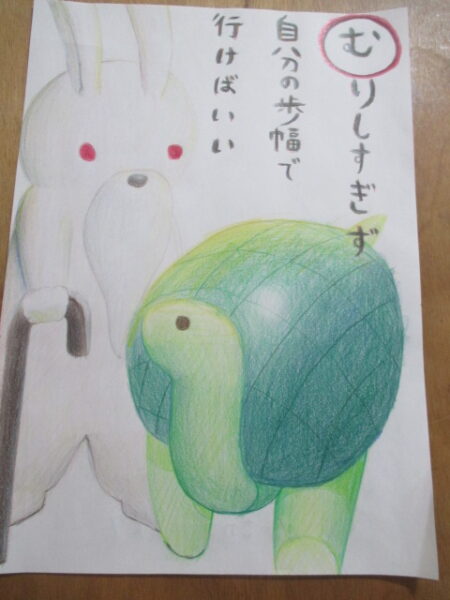 むりしすぎず
自分の歩幅で
行けばいい